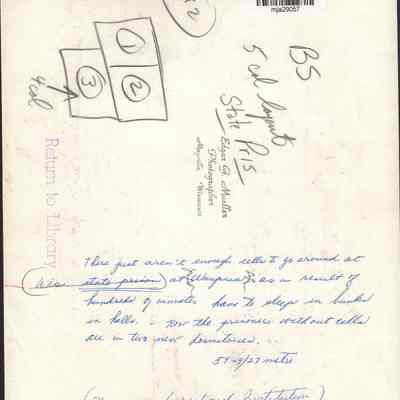 mja29057
2
BS
5 col layout
State Pris
1
2
3
4 col
Edgar G. Mueller
Photographer
Mayville - Wisconsin
Return to Library
There just aren't enough cells to go around at
Wis. state prison at Waupun as a result of
hundreds of inmates have to sleep in bunks
in halls. - Now the prisoners without cells
are in two new dormitories.
59-9/27 metro
Correctional Institution)